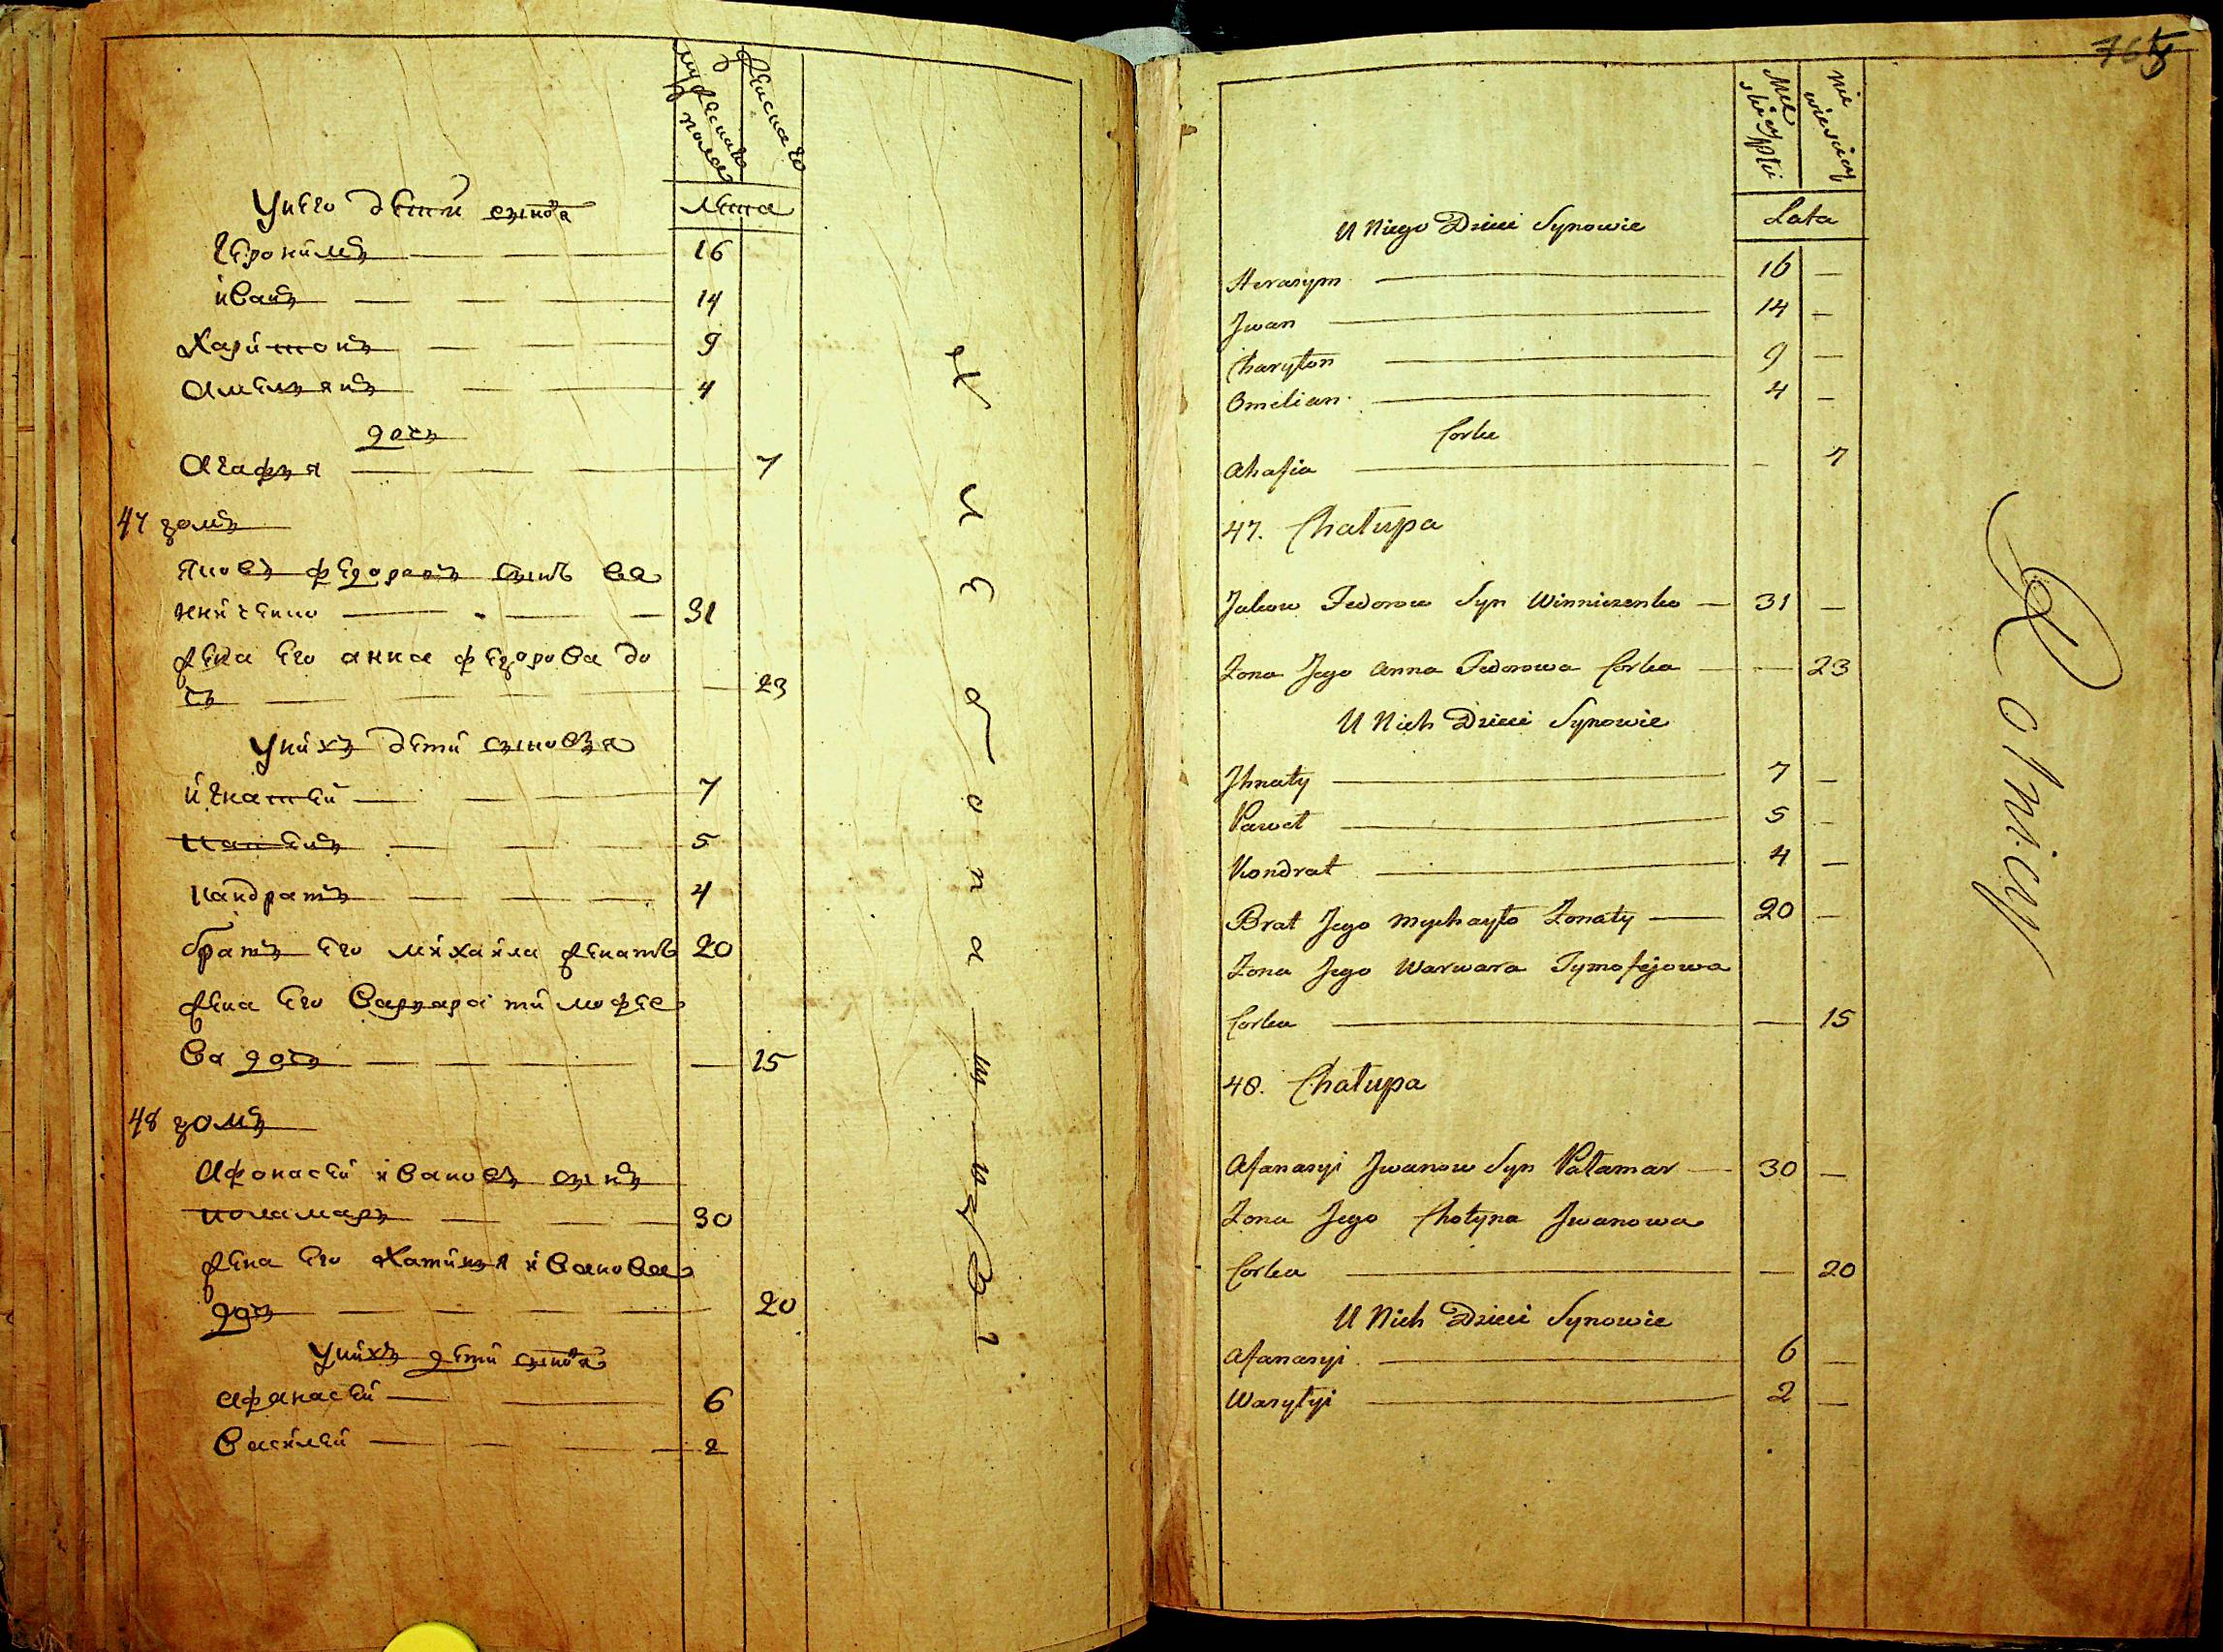 мужеска
полу
женска го
Лета
У него дети сыновя
Геронимъ 16
иванъ 14
Харитонъ 9
Амельянъ 4
дочь
Агафья 7
47 домъ
Яковъ федоровъ сынъ ви
ниченко 31
жена его анна федорова до
чь 23
У нихъ дети сыновья
игнатей 7
Павелъ 5
Кандратъ 4
братъ его михайла женатъ 20
жена его Варвара тимофее
ва дочь 15
48 домъ
Афонасей ивановъ сынъ
поламарь 30
жена его Хатинья иванова
дочь 20
У нихъ дети сыновя
афанасей 6
Василей 2
Męs
kiej płci
nie
wieściej
Lata
U Niego Dzieci Synowie
Herasym — 16 —
Jwan — 14 —
Charyton — 9 —
Omelian — 4 —
Corka
Ahafia — — 7
47. Chałupa
Jakow Fedorow Syn Winniczenko — 31 —
Zona Jego Anna Fedorowa Corka — — 23
U Nich Dzieci Synowie
Jhnaty — 7 —
Paweł — 5 —
Kondrat — 4 —
Brat Jego Mychayło Zonaty — 20 —
Zona Jego Warwara Tymofejowa
Corka — — 15
48. Chałupa
Afanasyi Jwanow Syn Pałamar — 30 —
Zona Jego Chotyna Jwanowa
Corka — — 20
U Nich Dzieci Synowie
Afanasyi — 6 —
Wasylyi — 2 —
Rolnicy